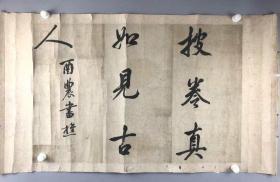 披卷真
如見古
人
酉農書樵